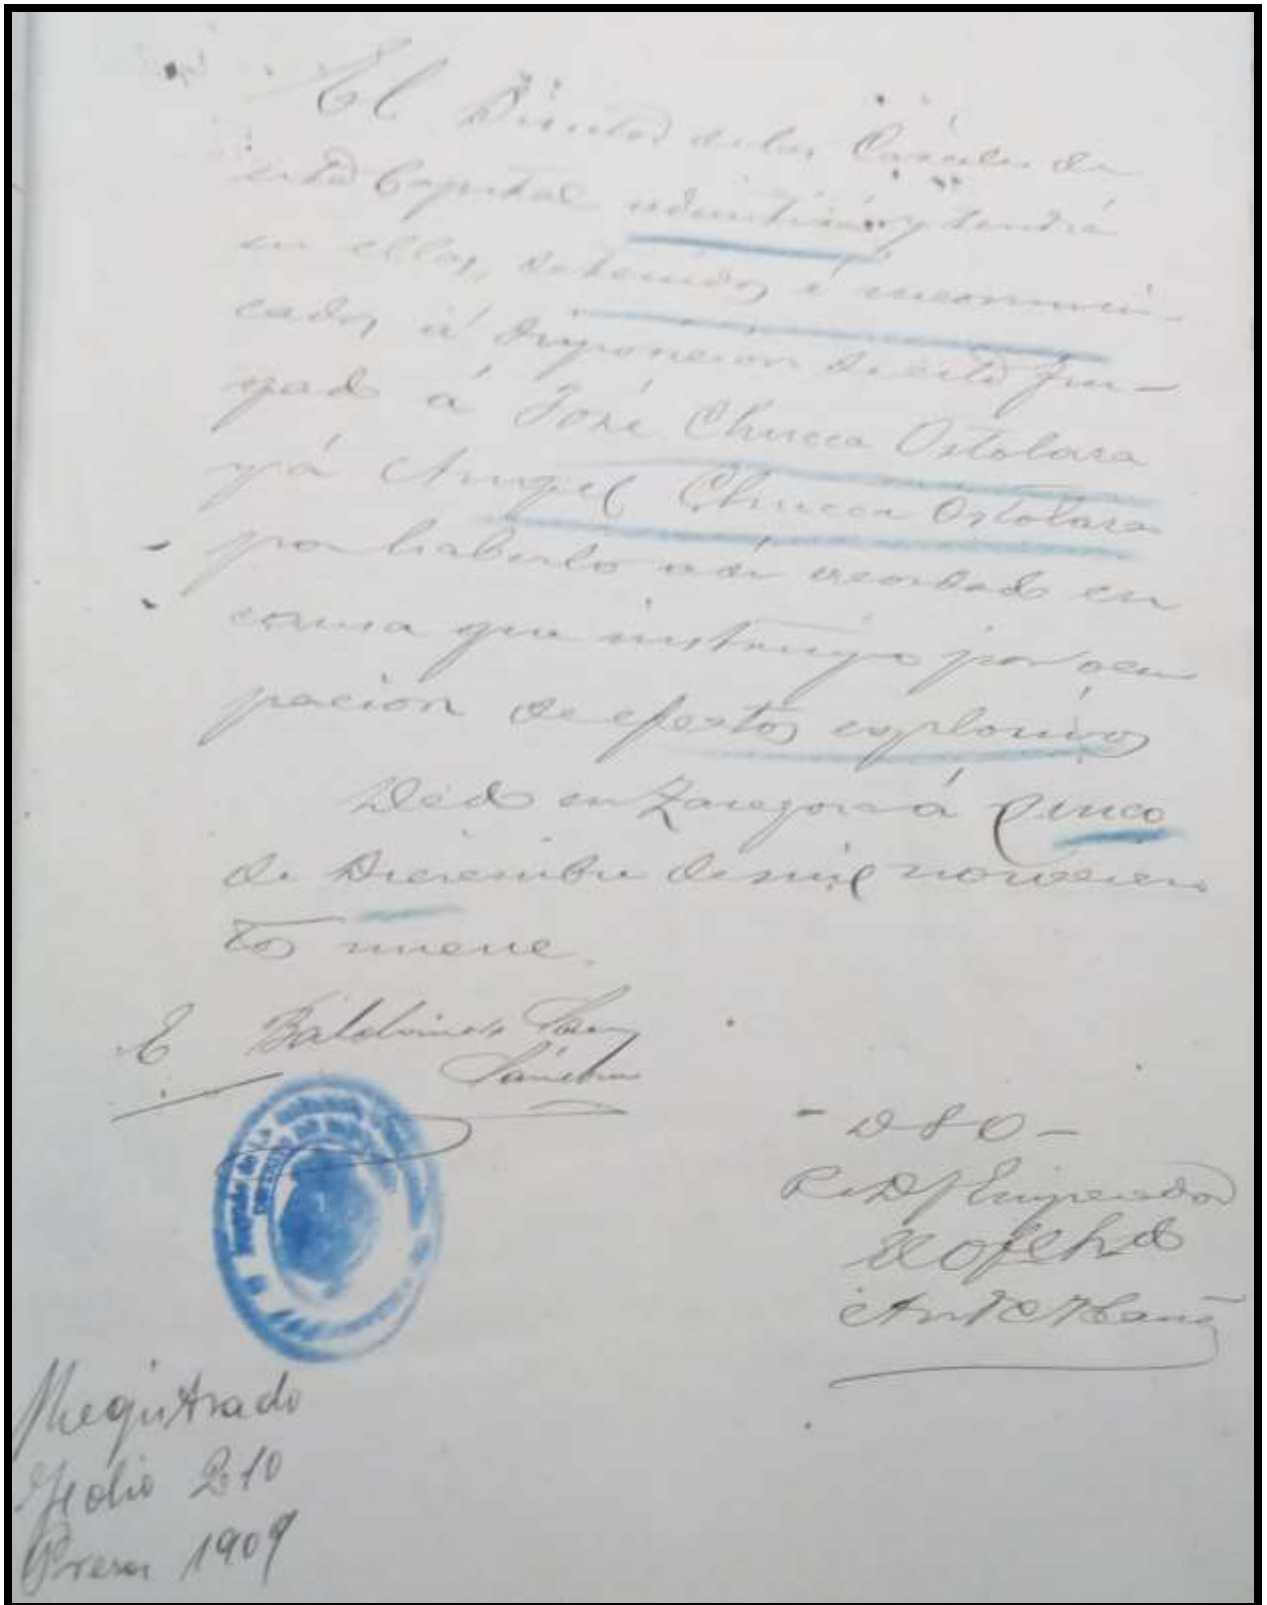 El Director de las Cárceles de
esta Capital admitirá y tendrá
en ellas, detenidos é incomuni-
cados á disposicion de este Juz-
gado á José Chueca Ostolara
y á Angel Chueca Ostolara
por haberlo asi acordado en
causa que instruyo por ocu
pacion de efectos explosivos
Dado en Zaragoza á Cinco
de Diciembre de mil novecien
tos nueve.
Baldomero
Sánchez
- D S O -
Emperador
Registrado
Folio 210
Presos 1909